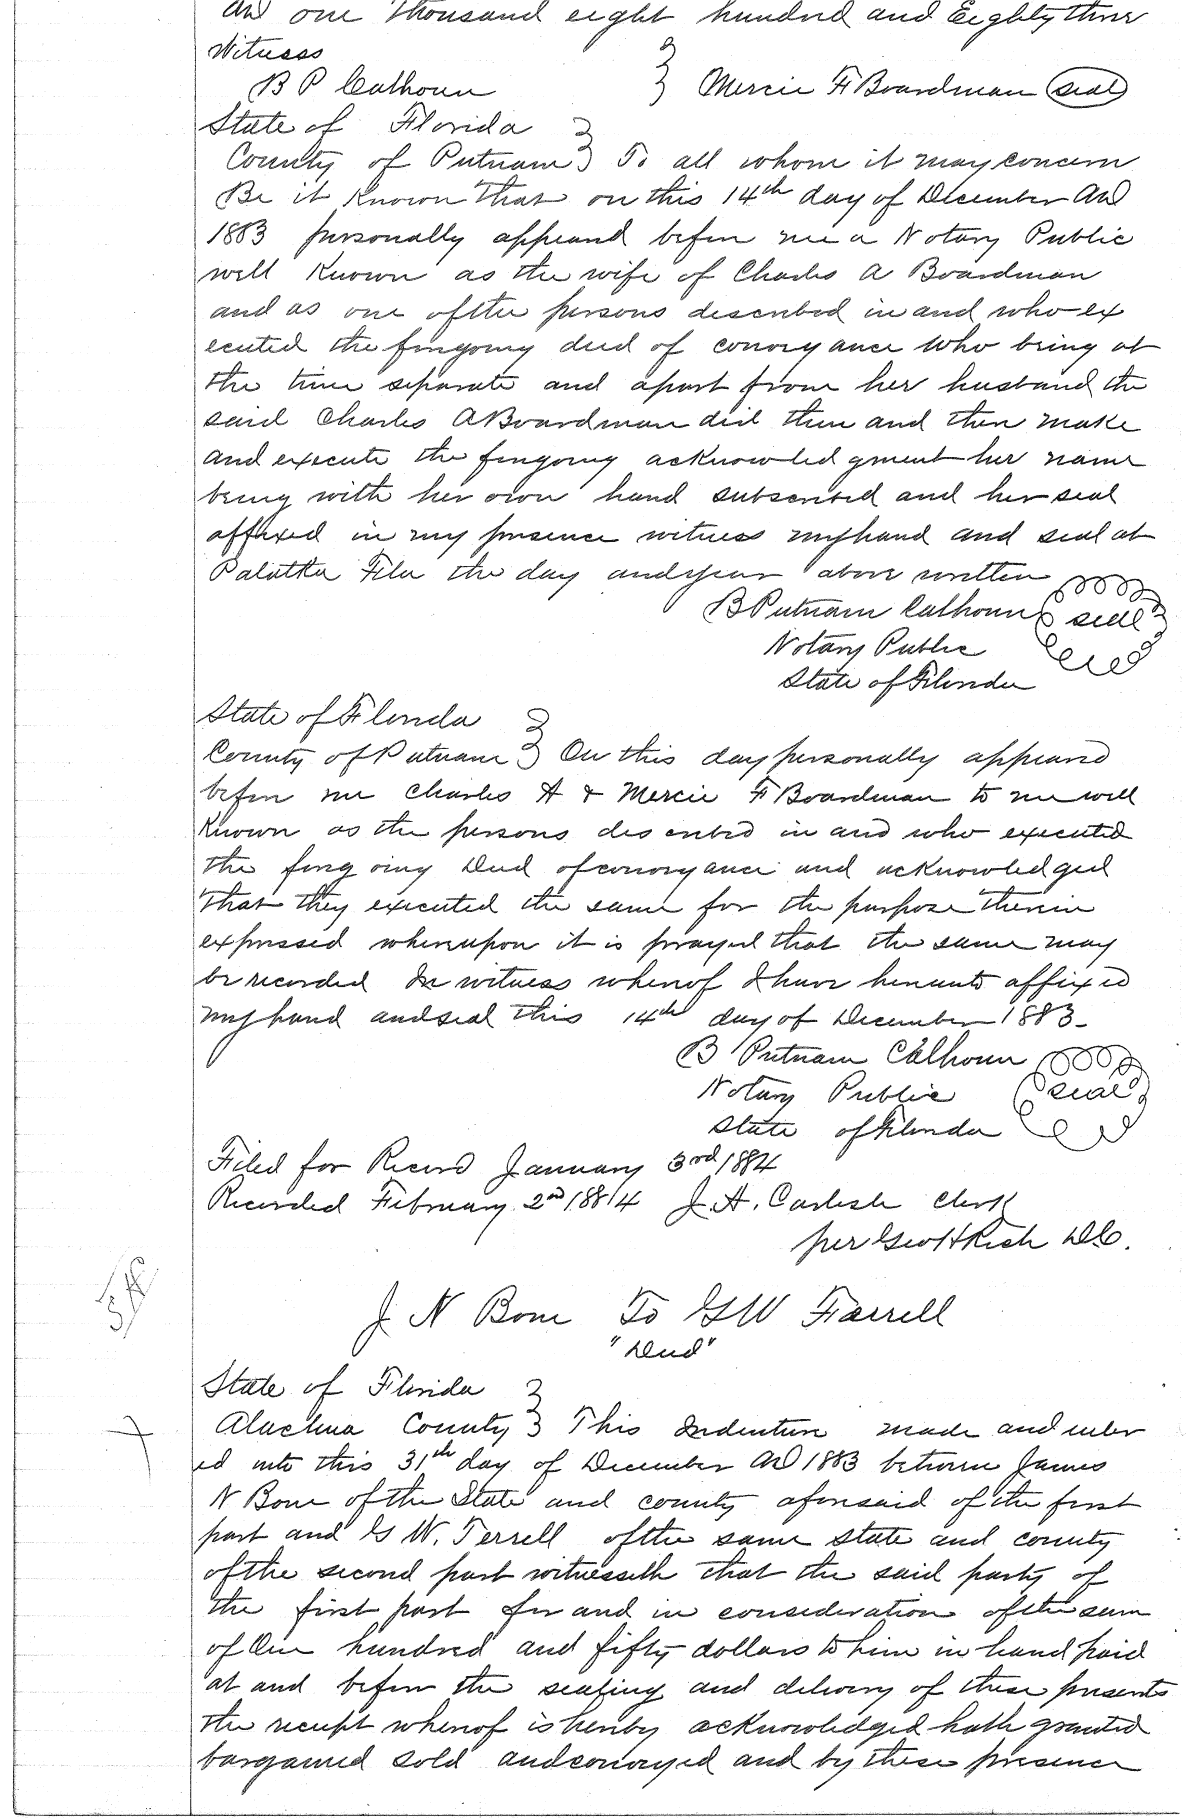 AD one thousand eight hundred and Eighty three
Witness
B P Calhoun } Mercie F Boardman (seal)
State of Florida }
County of Putnam } To all whom it may concern
Be it Known That on this 14th day of December AD
1883 personally appeared before me a Notary Public
well Known as the wife of Charles A Boardman
and as one of the persons described in and who ex
ecuted the foregoing deed of conveyance who being at
the time separate and apart from her husband the
said Charles A Boardman did then and then make
and execute the foregoing acknowledgment her name
being with her own hand subscribed and her seal
affixed in my presence witness my hand and seal at
Palatka Fla the day and year above written
B Putnam Calhoun seal
Notary Public
State of Florida
State of Florida }
County of Putnam } On this day personally appeared
before me Charles A & Mercie F Boardman to me well
Known as the persons described in and who executed
the foregoing Deed of conveyance and acknowledged
That they executed the same for the purpose therein
expressed whereupon it is prayed that the same may
be recorded In witness whereof I have hereunto affixed
my hand and seal this 14th day of December 1883
B Putnam Calhoun
Notary Public seal
State of Florida
Filed for Record January 3rd 1884
Recorded February 2nd 1884 J. A. Carlisle Clerk
per Geo H Rich D C.
J N Bone To G W Farrell
"Deed"
State of Florida }
Alachua County } This Indenture made and enter
ed into this 31th day of December AD 1883 between James
N Bone of the State and county aforesaid of the first
part and G W. Terrell of the same state and county
of the second part witnesseth that the said party of
the first part for and in consideration of the sum
of One hundred and fifty dollars to him in hand paid
at and before the sealing and delivery of these presents
the receipt whereof is hereby acknowledged hath granted
bargained sold and conveyed and by these presence